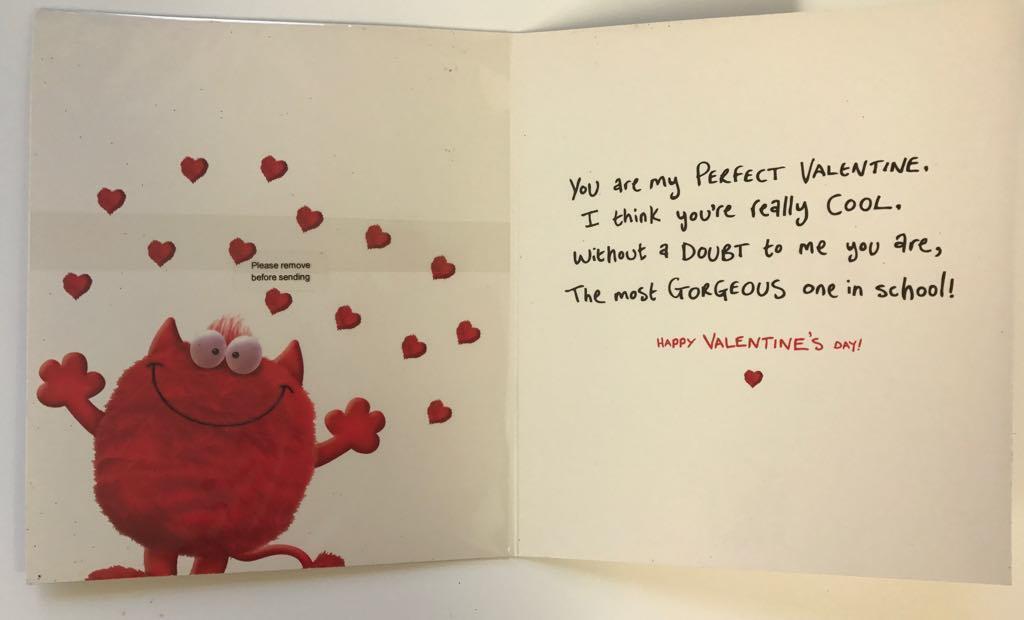 Please remove
before sending
You are my PERFECT VALENTINE.
I think you're really COOL.
Without a DOUBT to me you are,
The most GORGEOUS one in school!
HAPPY VALENTINE'S DAY!